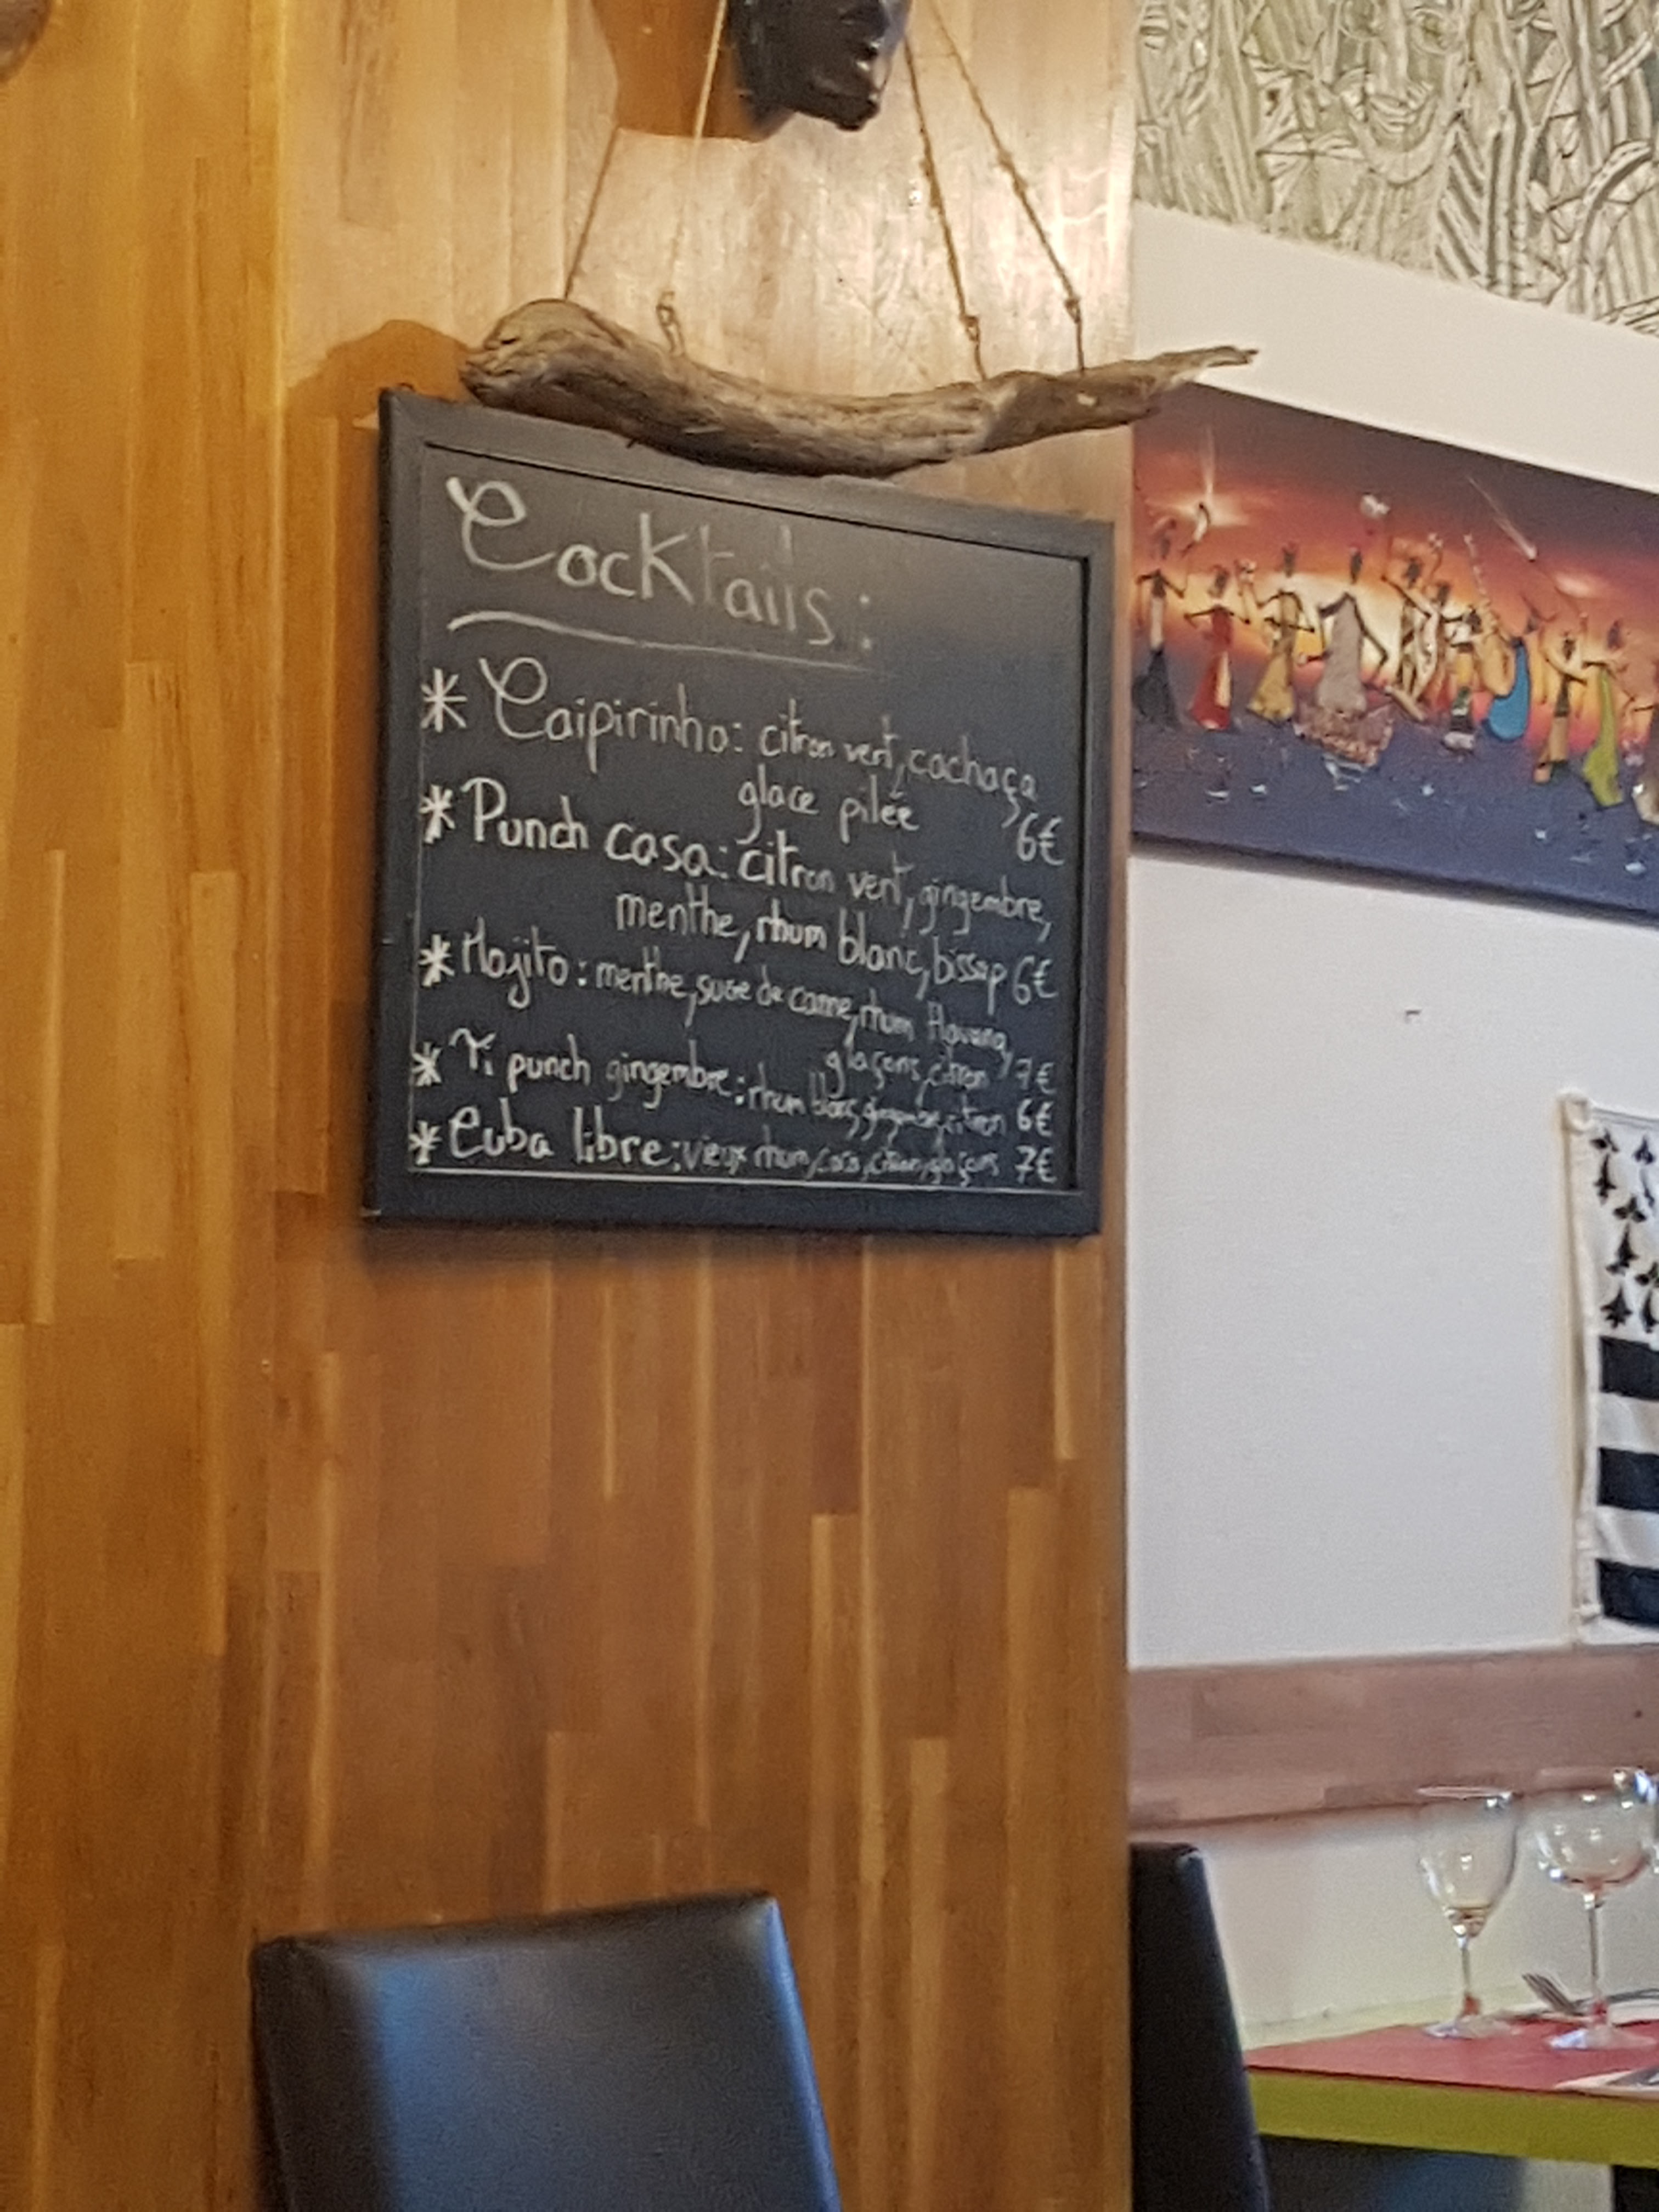 Cocktails :
* Caipirinha : citron vert, cachaça,
glace pilée 6€
* Punch casa : citron vert, gingembre,
menthe, rhum blanc, bissap 6€
* Mojito : menthe, sucre de canne, rhum Havana,
glaçons, citron 7€
* Ti punch gingembre : rhum blanc, gingembre, citron 6€
* Cuba libre : vieux rhum, coca, citron, glaçons 7€